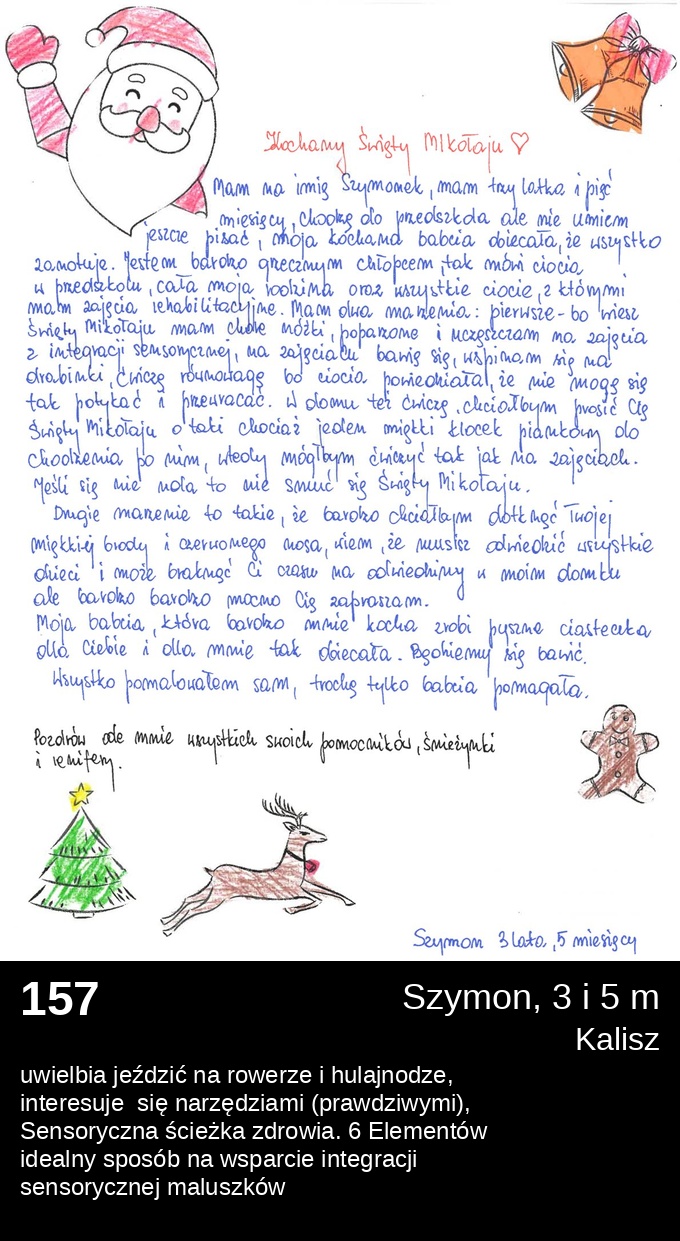 Kochany Święty Mikołaju ♡
Mam na imię Szymonek, mam trzy latka i pięć
miesięcy, chodzę do przedszkola ale nie umiem
jeszcze pisać, moja kochana babcia obiecała, że wszystko
zanotuje. Jestem bardzo grzecznym chłopcem, tak mówi ciocia
w przedszkolu, cała moja rodzina oraz wszystkie ciocie, z którymi
mam zajęcia rehabilitacyjne. Mam dwa marzenia: pierwsze - bo wiesz
Święty Mikołaju mam chore nóżki, poparzone i uczęszczam na zajęcia
z integracji sensorycznej, na zajęciach bawię się, wspinam się na
drabinki, ćwiczę równowagę bo ciocia powiedziała, że nie mogę się
tak potykać i przewracać. W domu też ćwiczę, chciałbym prosić Cię
Święty Mikołaju o taki chociaż jeden miękki klocek piankowy do
chodzenia po nim, wtedy mógłbym ćwiczyć tak jak na zajęciach.
Jeśli się nie uda to nie smuć się Święty Mikołaju.
Drugie marzenie to takie, że bardzo chciałbym dotknąć Twojej
miękkiej brody i czerwonego nosa, wiem, że musisz odwiedzić wszystkie
dzieci i może braknąć Ci czasu na odwiedziny w moim domku
ale bardzo bardzo mocno Cię zapraszam.
Moja babcia, która bardzo mnie kocha zrobi pyszne ciasteczka
dla Ciebie i dla mnie tak obiecała. Będziemy się bawić.
Wszystko pomalowałem sam, trochę tylko babcia pomagała.
Pozdrów ode mnie wszystkich swoich pomocników, śnieżynki
i renifery.
Szymon 3 lata, 5 miesięcy
157
Szymon, 3 i 5 m
Kalisz
uwielbia jeździć na rowerze i hulajnodze,
interesuje się narzędziami (prawdziwymi),
Sensoryczna ścieżka zdrowia. 6 Elementów
idealny sposób na wsparcie integracji
sensorycznej maluszków